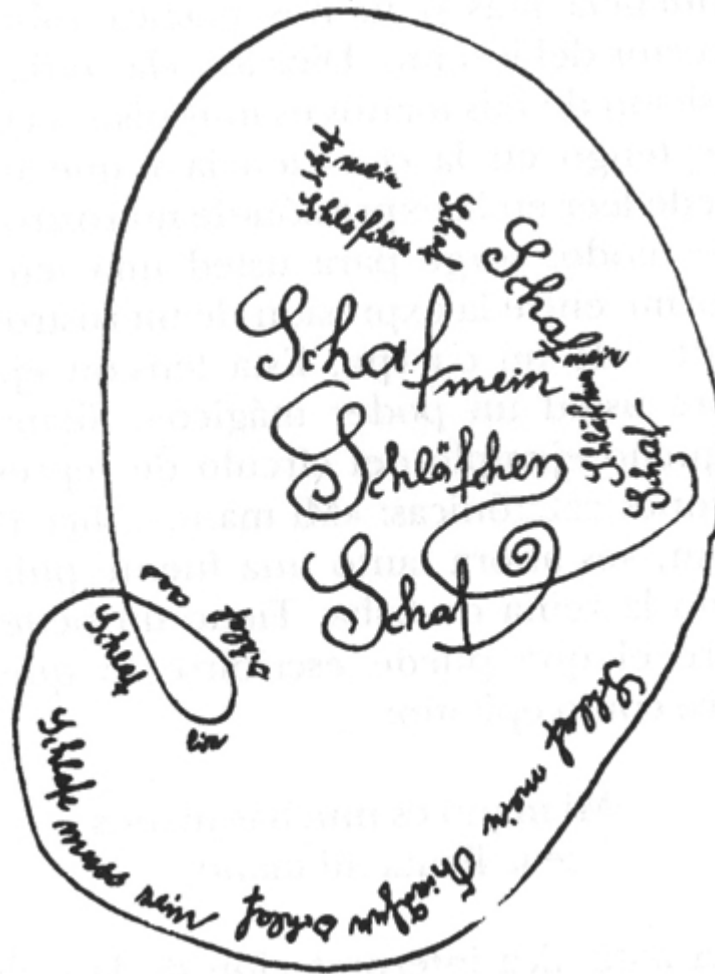 Schaf
mein
Schläfchen
Schaf
Schaf
mein
Schläfchen
Schaf
Schaf
mein
Schläfchen
Schaf
Schlaf mein
Schlaf
Schlafe
Schlaf
ein
Schlaf aus